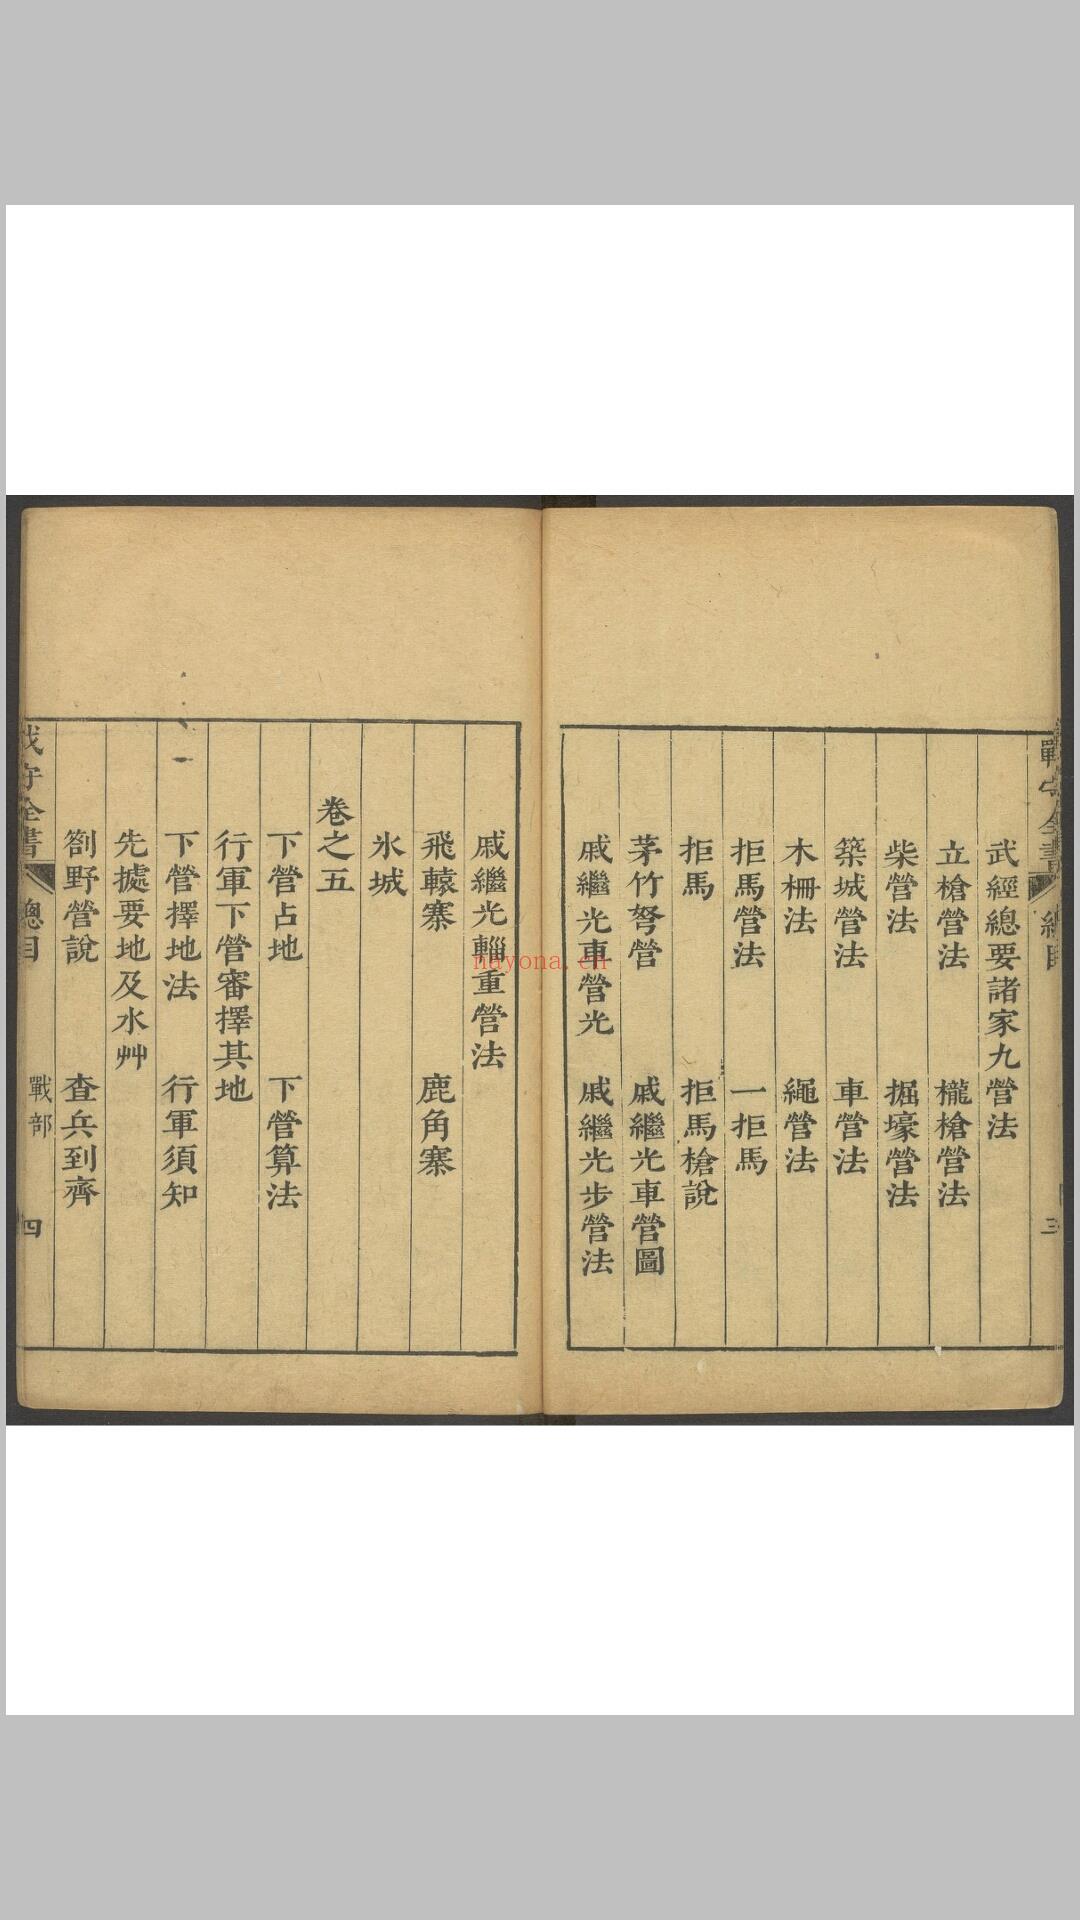 戰守全書 總目 三
武經總要諸家九營法
立槍營法 櫳槍營法
柴營法 掘壕營法
築城營法 車營法
木柵法 繩營法
拒馬營法 一拒馬
拒馬 拒馬槍說
茅竹弩營 戚繼光車營圖
戚繼光車營光 戚繼光步營法
戚繼光輜重營法
飛轅寨 鹿角寨
氷城
卷之五
下營占地 下營算法
行軍下營審擇其地
下營擇地法 行軍須知
先據要地及水艸
劄野營說 查兵到齊
戰守全書 總目 戰部 四
nayona.cn